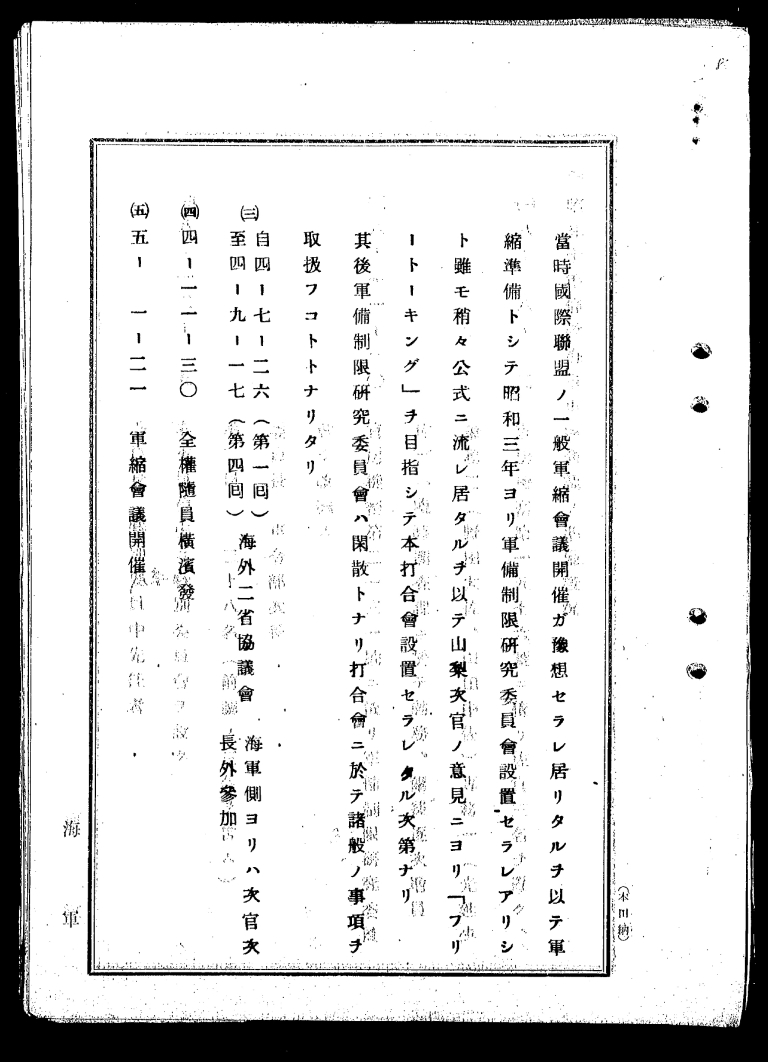 當時國際聯盟ノ一般軍縮會議開催ガ豫想セラレ居リタルヲ以テ軍
縮準備トシテ昭和三年ヨリ軍備制限硏究委員會設置セラレアリシ
ト雖モ稍々公式ニ流レ居タルヲ以テ山梨次官ノ意見ニヨリ「フリ
ートーキング」ヲ目指シテ本打合會設置セラレタル次第ナリ
其後軍備制限硏究委員會ハ閑散トナリ打合會ニ於テ諸般ノ事項ヲ
取扱フコトトナリタリ
㈢ 自四ー七ー二六(第一回)
至四ー九ー一七(第四回)
海外二省協議會
海軍側ヨリハ次官次
長外參加
㈣ 四ー一一ー三〇 全權隨員橫濱發
㈤ 五ー 一ー二一 軍縮會議開催
海軍